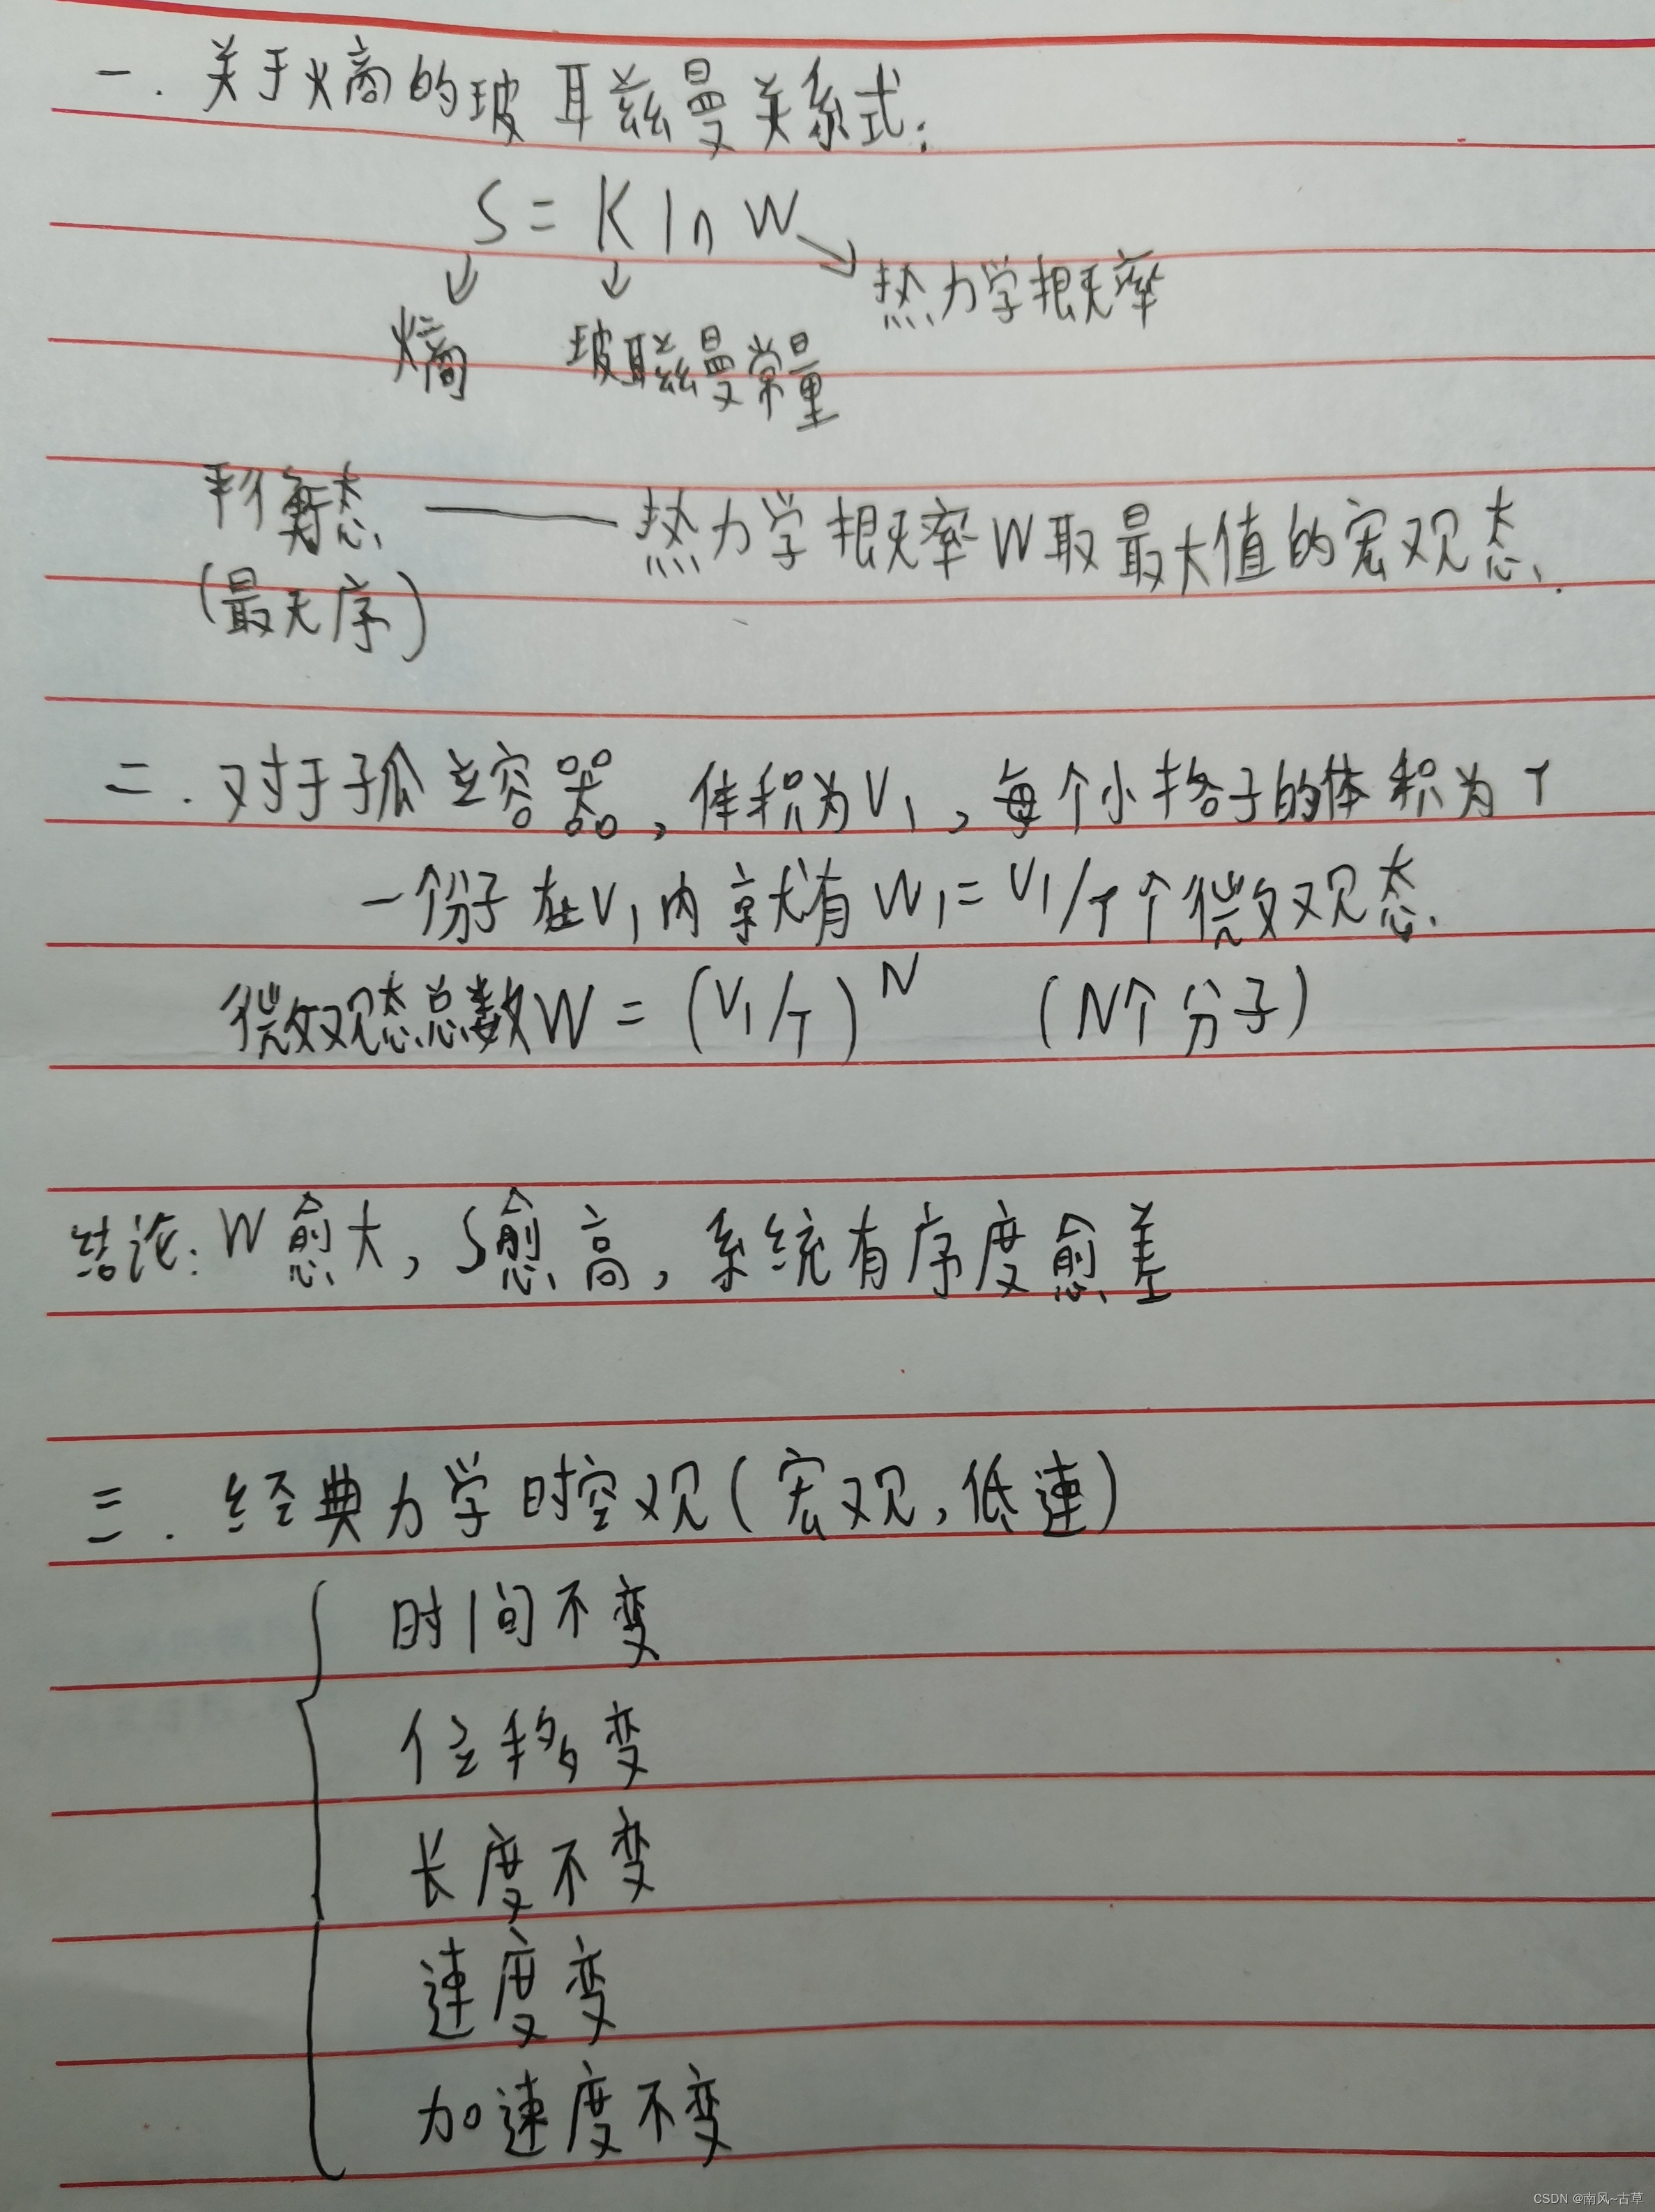 一. 关于熵的玻耳兹曼关系式:
S = K ln W
热力学概率
熵 玻耳兹曼常量
平衡态 —— 热力学概率W取最大值的宏观态.
(最无序)
二. 对于孤立容器, 体积为V₁, 每个小格子的体积为τ
一个份子在V₁内就有 W₁=V₁/τ个微观态.
微观态总数W = (V₁/τ)^N (N个分子)
结论: W愈大, S愈高, 系统有序度愈差
三. 经典力学时空观(宏观, 低速)
时间不变
位移变
长度不变
速度变
加速度不变
CSDN @南风~古草